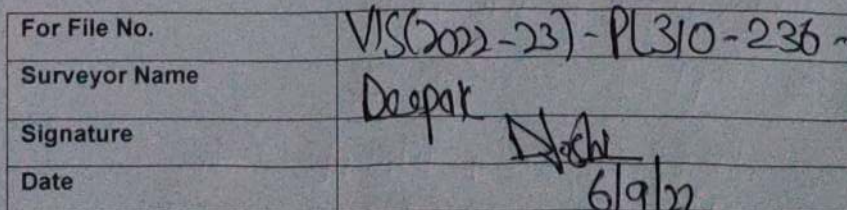 For File No. VIS(2022-23)-PL310-236-
Surveyor Name Deepak
Signature
Date 6/9/22